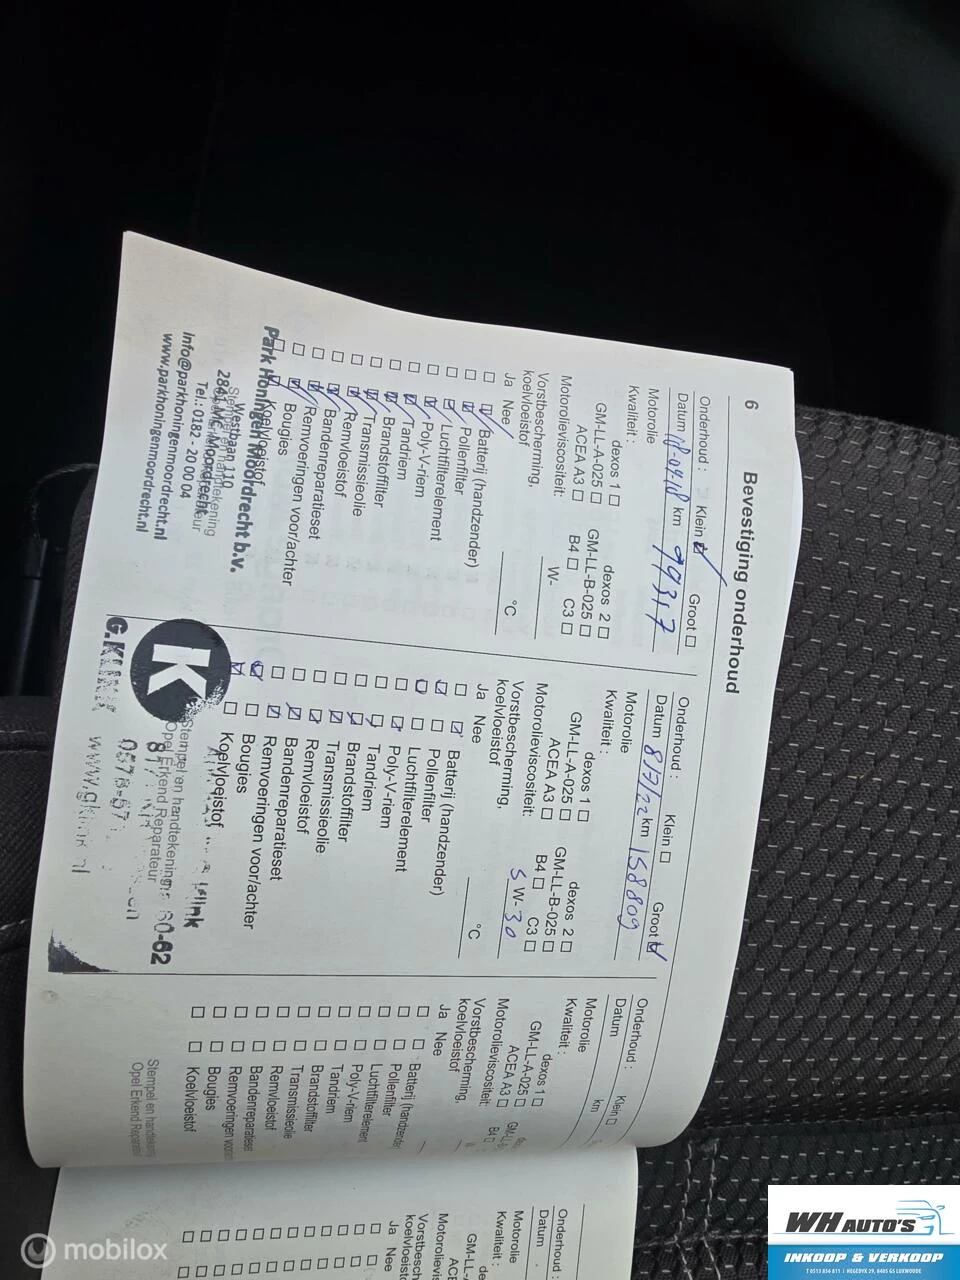 6 Bevestiging onderhoud
Onderhoud : Klein Groot
Datum 18-04-18 km 99317
Motorolie
Kwaliteit :
dexos 1 dexos 2
GM-LL-A-025 GM-LL-B-025
ACEA A3 B4 C3
Motorolieviscositeit: W-
Vorstbescherming,
koelvloeistof °C
Ja Nee
Batterij (handzender)
Pollenfilter
Luchtfilterelement
Poly-V-riem
Tandriem
Brandstoffilter
Transmissieolie
Remvloeistof
Bandenreparatieset
Remvoeringen voor/achter
Bougies
Koelvloeistof
Park Honingen Moordrecht b.v.
Westbaan 110
2841 MC Moordrecht
Tel.: 0182 - 20 00 04
info@parkhoningenmoordrecht.nl
www.parkhoningenmoordrecht.nl
Onderhoud : Klein Groot
Datum 8/7/22 km 158809
Motorolie
Kwaliteit :
dexos 1 dexos 2
GM-LL-A-025 GM-LL-B-025
ACEA A3 B4 C3
Motorolieviscositeit: 5 W- 30
Vorstbescherming,
koelvloeistof °C
Ja Nee
Batterij (handzender)
Pollenfilter
Luchtfilterelement
Poly-V-riem
Tandriem
Brandstoffilter
Transmissieolie
Remvloeistof
Bandenreparatieset
Remvoeringen voor/achter
Bougies
Koelvloeistof
Stempel en handtekening
Opel Erkend Reparateur
K
Onderhoud : Klein
Datum km
Motorolie
Kwaliteit :
dexos 1
GM-LL-A-025
ACEA A3 B4
Motorolieviscositeit:
Vorstbescherming,
koelvloeistof
Ja Nee
Batterij (handzender
Pollenfilter
Luchtfilterelement
Poly-V-riem
Tandriem
Brandstoffilter
Transmissieolie
Remvloeistof
Bandenreparatieset
Remvoeringen
Bougies
Koelvloeistof
Stempel en
Opel Erkend
Onderhoud :
Datum
Motorolie
Kwaliteit :
Ja Nee
mobilox
WH AUTO'S
INKOOP & VERKOOP
T 0513 856 811 | HEGEDYK 29, 8405 GS LUXWOUDE